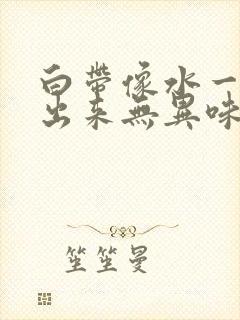 白帶像水一
出来無異味
笙笙曼